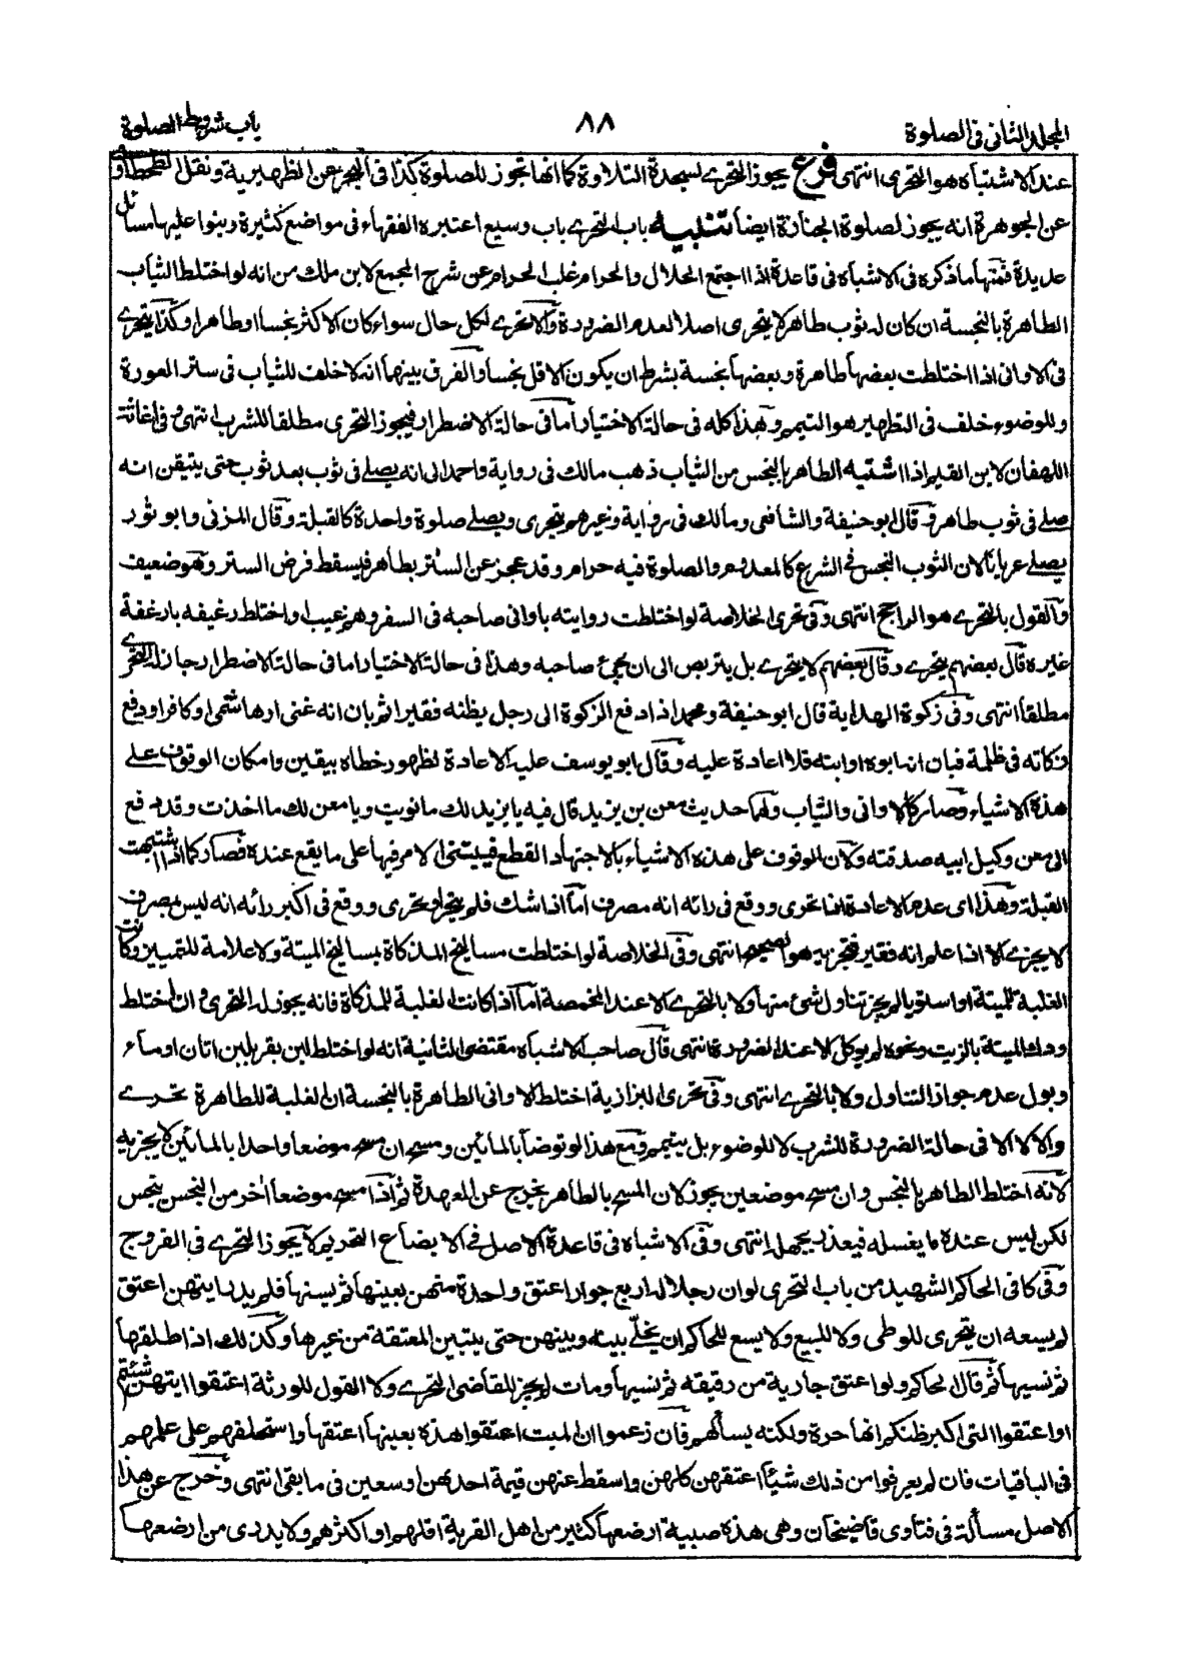 المجلد الثانی فی الصلوة
٨٨
باب شروط الصلوة
عند الاشتباه هو التحری انتهی فرع یجوز التحرے لسجدة التلاوة كما انها تجوز للصلوة كذا فی البحر عن الظهیریة ونقل الطحطاوی
عن الجوهرة انه یجوز لصلوة الجنازة ایضا تنبیه باب التحرے باب وسیع اعتبره الفقهاء فی مواضع كثیرة وبنوا علیها مسائل
عدیدة فمنها ما ذكره فی الاشباه فی قاعدة اذا اجتمع الحلال والحرام غلب الحرام عن شرح المجمع لابن ملك من انه لو اختلط الثیاب
الطاهرة بالنجسة ان كان له ثوب طاهر لا یتحری اصلا لعدم الضرورة والا تحرے لكل حال سواء كان الاكثر نجسا او طاهرا وكذا یتحرے
فی الاوانی اذا اختلطت بعضها طاهرة وبعضها نجسة بشرط ان یكون الاقل نجسا والفرق بینهما انه لا خلف للثیاب فی ستر العورة
وللوضوء خلف فی التطهیر هو التیمم وهذا كله فی حالة الاختیار اما فی حالة الاضطرار فیجوز التحری مطلقا للشرب انتهی وفی اغاثة
اللهفان لابن القیم اذا اشتبه الطاهر بالنجس من الثیاب ذهب مالك فی روایة واحمد الی انه یصلے فی ثوب بعد ثوب حتی یتیقن انه
صلے فی ثوب طاهر وقال ابو حنیفة والشافعی ومالك فی روایة وغیرهم یتحری ویصلے صلوة واحدة كالقبلة وقال المزنی وابو ثور
یصلے عریانا لان الثوب النجس فی الشرع كالمعدوم والصلوة فیه حرام وقد عجز عن الستر بطاهر فیسقط فرض الستر وهو ضعیف
والقول بالتحرے هو الراجح انتهی وفی تحری الخلاصة لو اختلطت روایته باوانی صاحبه فی السفر وهم غیب او اختلط رغیفه بارغفة
غیره قال بعضهم یتحرے وقال بعضهم لا یتحرے بل یتربص الی ان یجیء صاحبه وهذا فی حالة الاختیار اما فی حالة الاضطرار جاز له التحرے
مطلقا انتهی وفی زكوة الهدایة قال ابو حنیفة ومحمد اذا دفع الزكوة الی رجل یظنه فقیرا ثم بان انه غنی او هاشمی او كافر او دفع
زكاته فی ظلمة فبان انه ابوه او ابنه فلا اعادة علیه وقال ابو یوسف علیه الاعادة لظهور خطاه بیقین وامكان الوقوف علے
هذه الاشیاء وصار كالاوانی والثیاب ولهما حدیث معن بن یزید قال فیه یا یزید لك ما نویت ویا معن لك ما اخذت وقد دفع
الی معن وكیل ابیه صدقته ولان الوقوف علی هذه الاشیاء بالاجتهاد القطع فیبتنی الامر فیها علی ما یقع عنده فصار كما اذا اشتبهت
القبلة وهذا ای عدم الاعادة اذا تحری ووقع فی رائه انه مصرف اما اذا شك فلم یتحر او تحری ووقع فی اكبر رائه انه لیس بمصرف
لا یجزیه الا اذا علم انه فقیر فتجزیه هو الصحیح انتهی وفی الخلاصة لو اختلطت مسالیخ المذكاة بمسالیخ المیتة ولا علامة للتمییز وكانت
الغلبة للمیتة او استویا لم یجز تناول شئ منها ولا بالتحرے الا عند المخمصة اما اذا كانت الغلبة للمذكاة فانه یجوز له التحری وان اختلط
ودك المیتة بالزیت ونحوه لم یوكل الا عند الضرورة انتهی قال صاحب الاشباه مقتضی الثانیة انه لو اختلط لبن بقر بلبن اتان او ماء
وبول عدم جواز التناول ولا بالتحرے انتهی وفی تحری البزازیة اختلط الاوانی الطاهرة بالنجسة ان الغلبة للطاهرة تحرے
والا لا الا فی حالة الضرورة للشرب لا للوضوء بل یتیمم ومع هذا لو توضأ بالمائین ومسح ان مسح موضعا واحدا بالمائین لا یجزیه
لانه اختلط الطاهر بالنجس وان مسح موضعین یجوز لان المسح بالطاهر یخرج عن العهدة ثم اذا مسح موضعا اخر من النجس ینجس
لكن لیس عنده ما یغسله فیعذر بجهله انتهی وفی الاشباه فی قاعدة الاصل فی الابضاع التحریم لا یجوز التحرے فی الفروج
وفی كافی الحاكم الشهید من باب التحری لو ان رجلا له اربع جوار اعتق واحدة منهن بعینها ثم نسیها فلم یدر ایتهن اعتق
لم یسعه ان یتحری للوطی ولا للبیع ولا یسع للحاكم ان یخلی بینه وبینهن حتی یتبین المعتقة من غیرها وكذلك اذا طلقها
ثم نسیها ثم قال الحاكم ولو اعتق جاریة من رقیقه ثم نسیها ومات لم یجز للقاضی التحرے ولا القول للورثة اعتقوا ایتهن شئتم
او اعتقوا التی اكبر ظنكم انها حرة ولكنه یسألهم فان زعموا ان المیت اعتقوا هذه بعینها اعتقها واستحلفهم علی علمهم
فی الباقیات فان لم یعرفوا من ذلك شیئا اعتقهن كلهن واسقط عنهن قیمة احدیهن وسعین فی ما بقی انتهی وخرج عن هذا
الاصل مسألة فی فتاوی قاضیخان وهی هذه صبیة ارضعها كثیر من اهل القریة اقلهم او اكثرهم ولا یدری من ارضعها